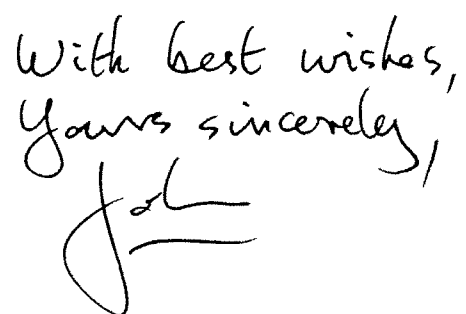 With best wishes,
Yours sincerely,
John